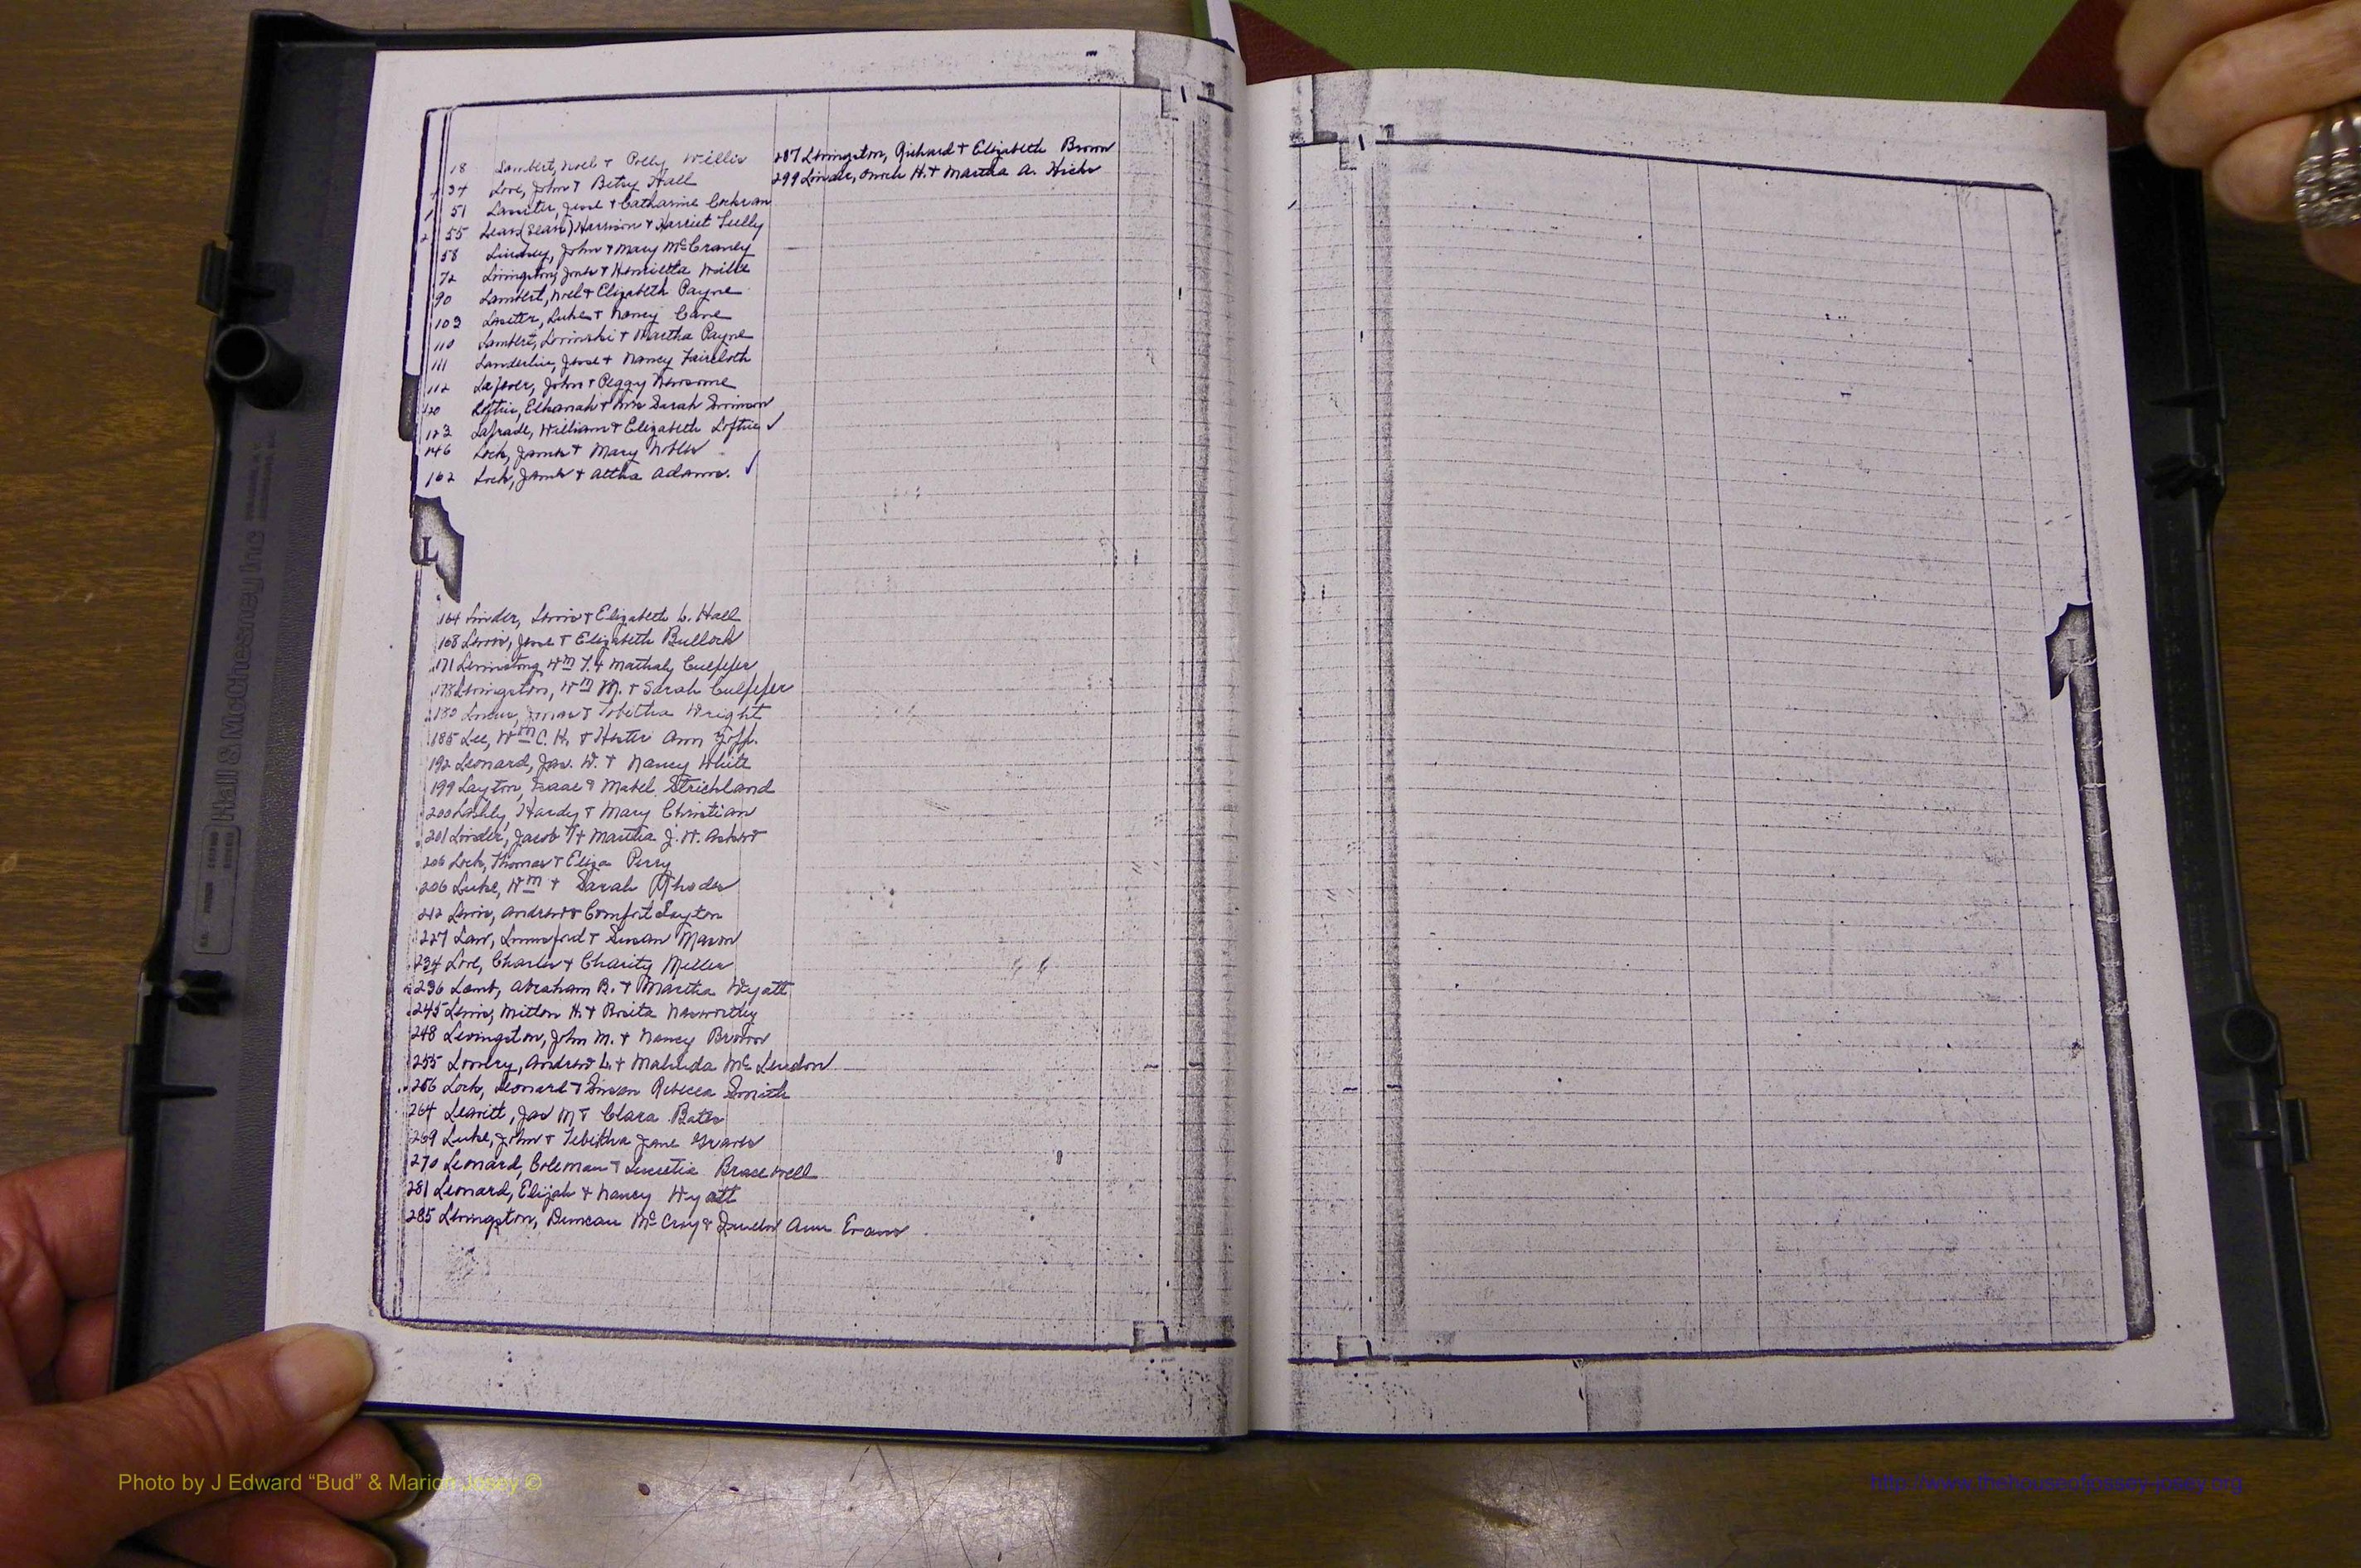 18 Lambert, Noel & Polly Willis
34 Love, John & Betsy Hall
51 Lassiter, Jesse & Catharine Cockran
55 Leas (Seas) Harrison & Harriet Tully
58 Lindsey, John & Mary McCraney
72 Livingston, Jones & Henrietta
90 Lambert, Noel & Elizabeth Payne
103 Lasitter, Luke & Nancy Cane
110 Lambert, & Martha Payne
111 Landerlin, Jesse & Nancy Faircloth
112 John & Peggy Newsome
120 Loftin, Elkanah & Mrs Sarah
123 Lafrade, William & Elizabeth Loftin ✓
146 Lock, James & Mary Nobles
162 Lock, James & Altha Adams. ✓
L
164 Linder, Lewis & Elizabeth L. Hall
168 Lewis, Jesse & Elizabeth Bulloch
171 Wm T. & Culpeper
178 Livingston, Wm M. & Sarah Culpeper
180 & Tobitha Wright
185 Lee, Wm C. K. & Hester Ann
192 Leonard, Jas. W. & Nancy White
199 Layton, Isaac & Mabel Strickland
200 Lashly, Hardy & Mary Christian
201 Linder, Jacob T & Martha J. W.
206 Lock, Thomas & Eliza Perry
206 Luke, Wm & Sarah Rhodes
212 Lewis, Andrew & Comfort Layton
227 Law, Lunsford & Susan Mason
234 Love, Charles & Charity Miller
236 Lamb, Abraham B. & Martha Wyatt
245 Lewis, Milton H. & Nasworthy
248 Levingston, John M. & Nancy Brown
255 Lowery, Andrew L. & Malinda McLendon
256 Lock, Leonard & Susan Rebecca Smith
264 Leavitt, Jas M & Clara Bates
269 Luke, John & Tebitha Jane Graves
270 Leonard, Coleman & Lucretia Bracewell
281 Leonard, Elijah & Nancy Wyatt
285 Livingston, Duncan McCroy & Ann Evans
287 Livingston, Richard & Elizabeth Brown
299 Linder, H. & Martha A. Hicks
Hall & McChesney, Inc
Photo by J Edward “Bud” & Marion Josey ©
http://www.thehouseofjossey-josey.org